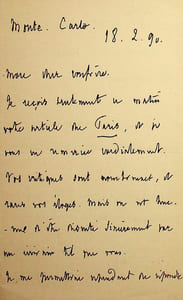 Monte. Carlo.
18. 2. 90.
mon cher confrère.
Je reçois seulement ce matin
votre article du Paris, et je
vous en remercie cordialement.
Vos critiques sont nombreuses, et
rares vos éloges. Mais on est
même d'être discuté sincèrement par
un écrivain tel que vous.
Je me permettrai cependant de répondre